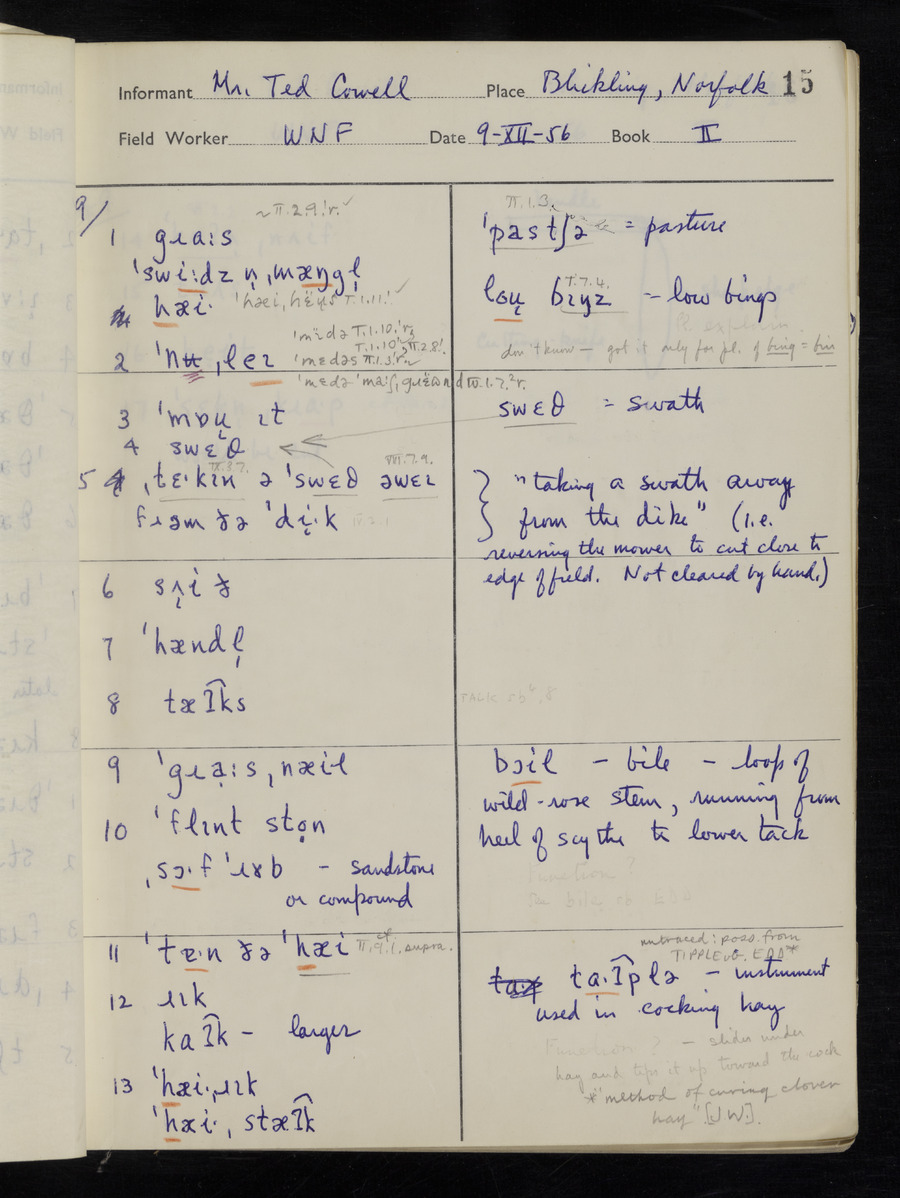 Informant Mr. Ted Cowell Place Blickling, Norfolk 15
Field Worker WNF Date 9-XII-56 Book II
9/
~II.2.9.¹r. ✓
1 gɹa:s
ˈswi:dz n̩ ˌmæŋgl̩
hæi· ˈhæi, T.1.11.¹ ✓
2 ˈnʉ ˌleɪ
ˈmɛdəs II.1.3.¹r.
3 ˈmɒʉ ɪt
4 swɛˈθ
5 ˌtɛ·kɪn ə ˈswɛθ əwɛɪ
II.3.7. VIII.7.9.
fɹəm ðə ˈdi̞·k IV.2.1
6 sʌ̨i ð
7 ˈhændl̩
8 tæÎks
9 ˈgɹa̤:s ˌnæil
10 ˈflɪnt sto̤n
ˌsɔ·f ˈɹɤb – sandstone
or compound
11 ˈtæ·n ðə ˈhæi cf. II.9.1. supra.
12 ɹɪk
kaÎk – larger
13 ˈhæi·ˌɹɪk
ˈhæi·ˌstæÎk
II.1.3.
ˈpastʃə = pasture
T.7.4.
loʉ bɪŋz – low bings
explain
don't know – got it only for pl. of bing = bin
swɛθ = swath
} "taking a swath away
} from the dike" (i.e.
reversing the mower to cut close to
edge of field. Not cleared by hand.)
TALK sb⁶, 8
bɔil – bile – loop of
wild-rose stem, running from
heel of scythe to lower tack
Function?
See bile sb EDD
untraced: poss. from
TIPPLE vb. EDD*
ta·Îplə – instrument
used in cocking hay
Function? – slides under
hay and tips it up toward the cock
*"method of curing clover
hay" [JW].